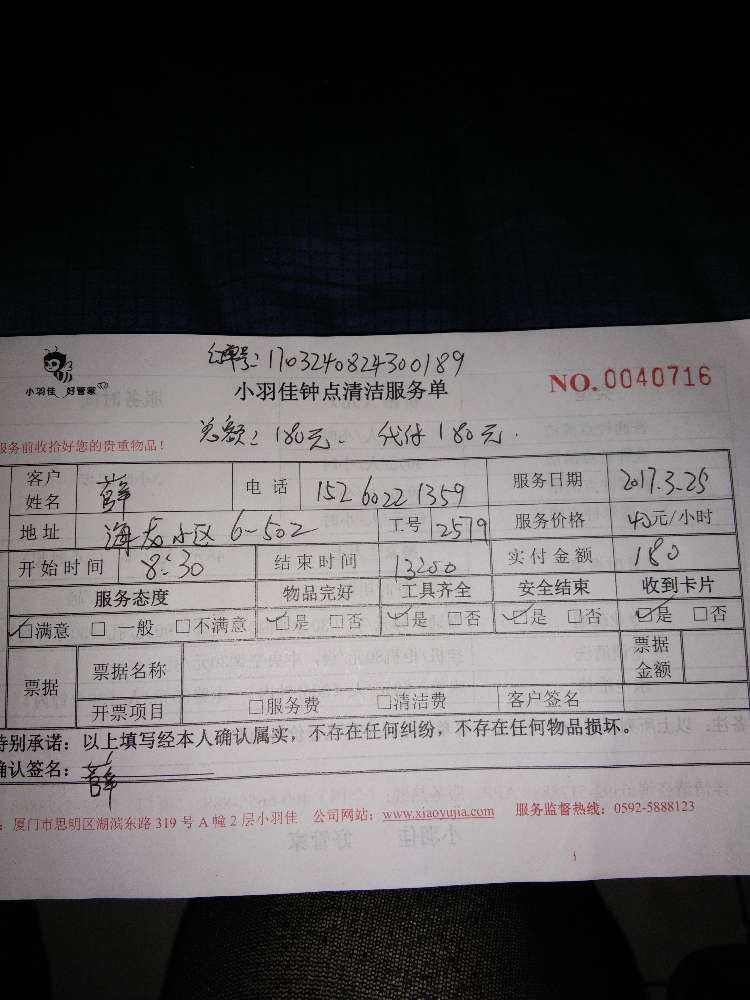 订单号：1703240824300189
小羽佳 好管家
小羽佳钟点清洁服务单
NO.0040716
总额：180元. 代付180元.
服务前收拾好您的贵重物品！
客户姓名 薛 电话 15260221359 服务日期 2017.3.25
地址 海龙小区6-502 工号 2579 服务价格 40元/小时
开始时间 8:30 结束时间 13:00 实付金额 180
服务态度 物品完好 工具齐全 安全结束 收到卡片
☑满意 □一般 □不满意 ☑是 □否 ☑是 □否 ☑是 □否 ☑是 □否
票据 票据名称 票据金额
开票项目 □服务费 □清洁费 客户签名
特别承诺：以上填写经本人确认属实，不存在任何纠纷，不存在任何物品损坏。
确认签名：薛
：厦门市思明区湖滨东路319号A幢2层小羽佳 公司网站：www.xiaoyujia.com 服务监督热线：0592-5888123